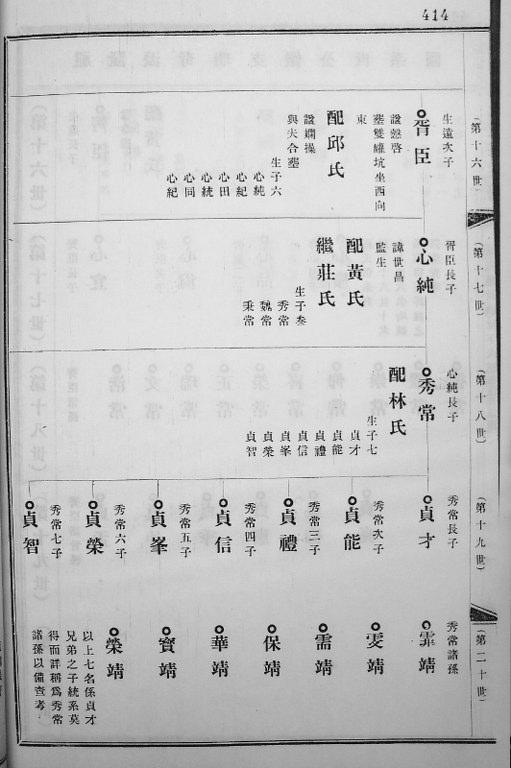 414
(第十六世)
生遠次子
胥臣
諡慇啓
塟雙罐坑坐西向
東
配邱氏
諡嫻操
與夫合塟
生子六
心純
心紀
心統
心田
心同
心紀
(第十七世)
胥臣長子
心純
諱世昌
監生
配黃氏
繼莊氏
生子叁
秀常
魏常
秉常
(第十八世)
心純長子
秀常
配林氏
生子七
貞才
貞能
貞禮
貞信
貞峯
貞榮
貞智
(第十九世)
秀常長子
貞才
秀常次子
貞能
秀常三子
貞禮
秀常四子
貞信
秀常五子
貞峯
秀常六子
貞榮
秀常七子
貞智
(第二十世)
秀常諸孫
霏靖
雯靖
需靖
保靖
華靖
寶靖
榮靖
以上七名係貞才
兄弟之子統系莫
得而詳稱爲秀常
諸孫以備查考